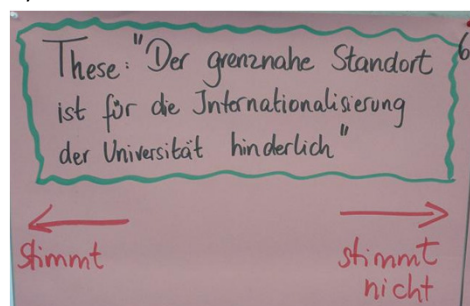 These: "Der grenznahe Standort
ist für die Internationalisierung
der Universität hinderlich"
6
stimmt
stimmt
nicht